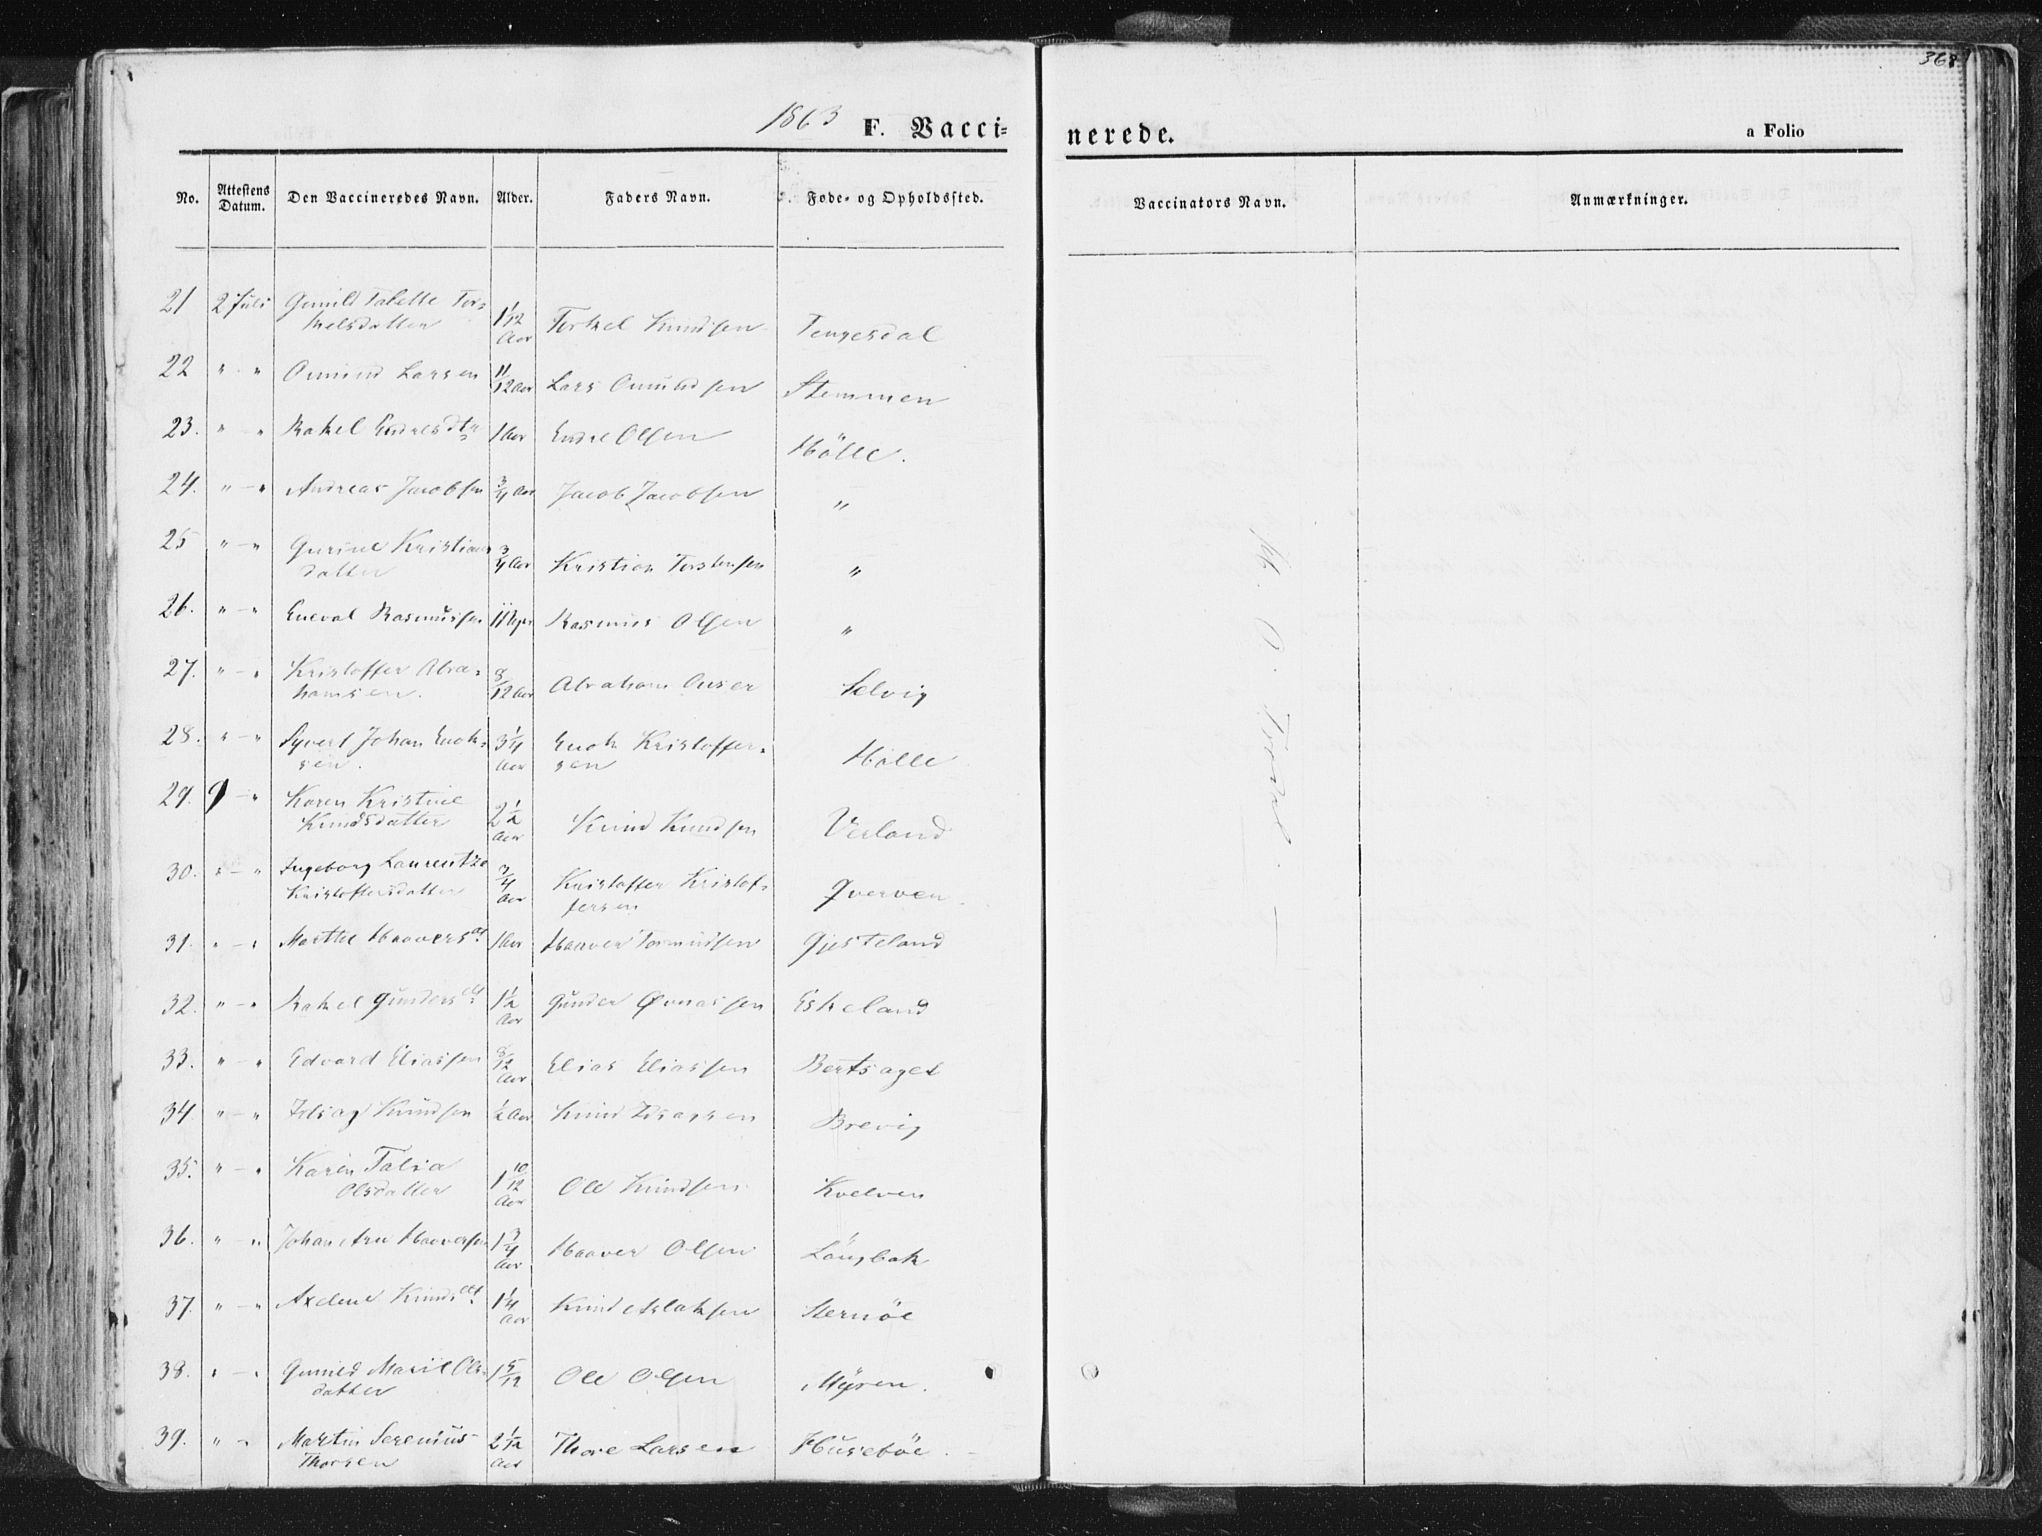 368
1863 F. Vacci=
nerede.
a Folio
No. Attestens Datum. Den Vaccineredes Navn. Alder. Faders Navn. Føde= og Opholdssted.
Vaccinators Navn. Anmærkninger.
21 2 Juli Gunild Tabette Tor=
kelsdatter 1 1/12 Aar Torkel Knudsen Tengesdal
22 " - " Omund Larsen 11/12 Aar Lars Omundsen Stemmen
23. " - " Rakel Endresdtr 1 Aar Endre Olsen Hölle.
24. " - " Andreas Jacobsen 3/4 Aar Jacob Jacobsen "
25 " - " Gurine Kristians
datter 3/4 Aar Kristian Torstensen "
26. " - " Eneval Rasmussen 11 Uger Rasmus Olsen "
27. " - " Kristoffer Abra=
hamsen. 8/12 Aar Abraham Selvig
28. " - " Syvert Johan Enok=
sen. 3 1/4 Aar Enok Kristoffer=
sen Hölle
29. 9 - " Karen Kristine
Knudsdatter 2 1/2 Aar Knud Knudsen Verland
30. " - " Ingeborg Laurentze
Kristoffersdatter 3/4 Aar Kristoffer Kristof=
fersen Qverven.
31. " - " Marthe Haaversdt 1 Aar Haaver Tormodsen Gjesteland
32. " - " Rakel Gundersdt 1 1/2 Aar Gunder Eskeland
33. " - " Edvard Eliassen 8/12 Aar Elias Eliassen Bertsaget
34. " - " Knudsen 1/2 Aar Knud Brevig
35. " - " Karen Talia
Olsdatter 1 10/12 Aar Ole Knudsen Kvelven
36. " - " Johan Arn Haaversen 1 3/4 Aar Haaver Olsen Långbak
37. " - " Axeline Knudsdt 1 1/4 Aar Knud Aslaksen Sternöe
38. " - " Gunild Marie Ols=
datter 1 5/12 Ole Olsen Myren.
39. " - Martin Serenius
Thorsen 2 1/12 Aar Thore Larsen Husebøe.